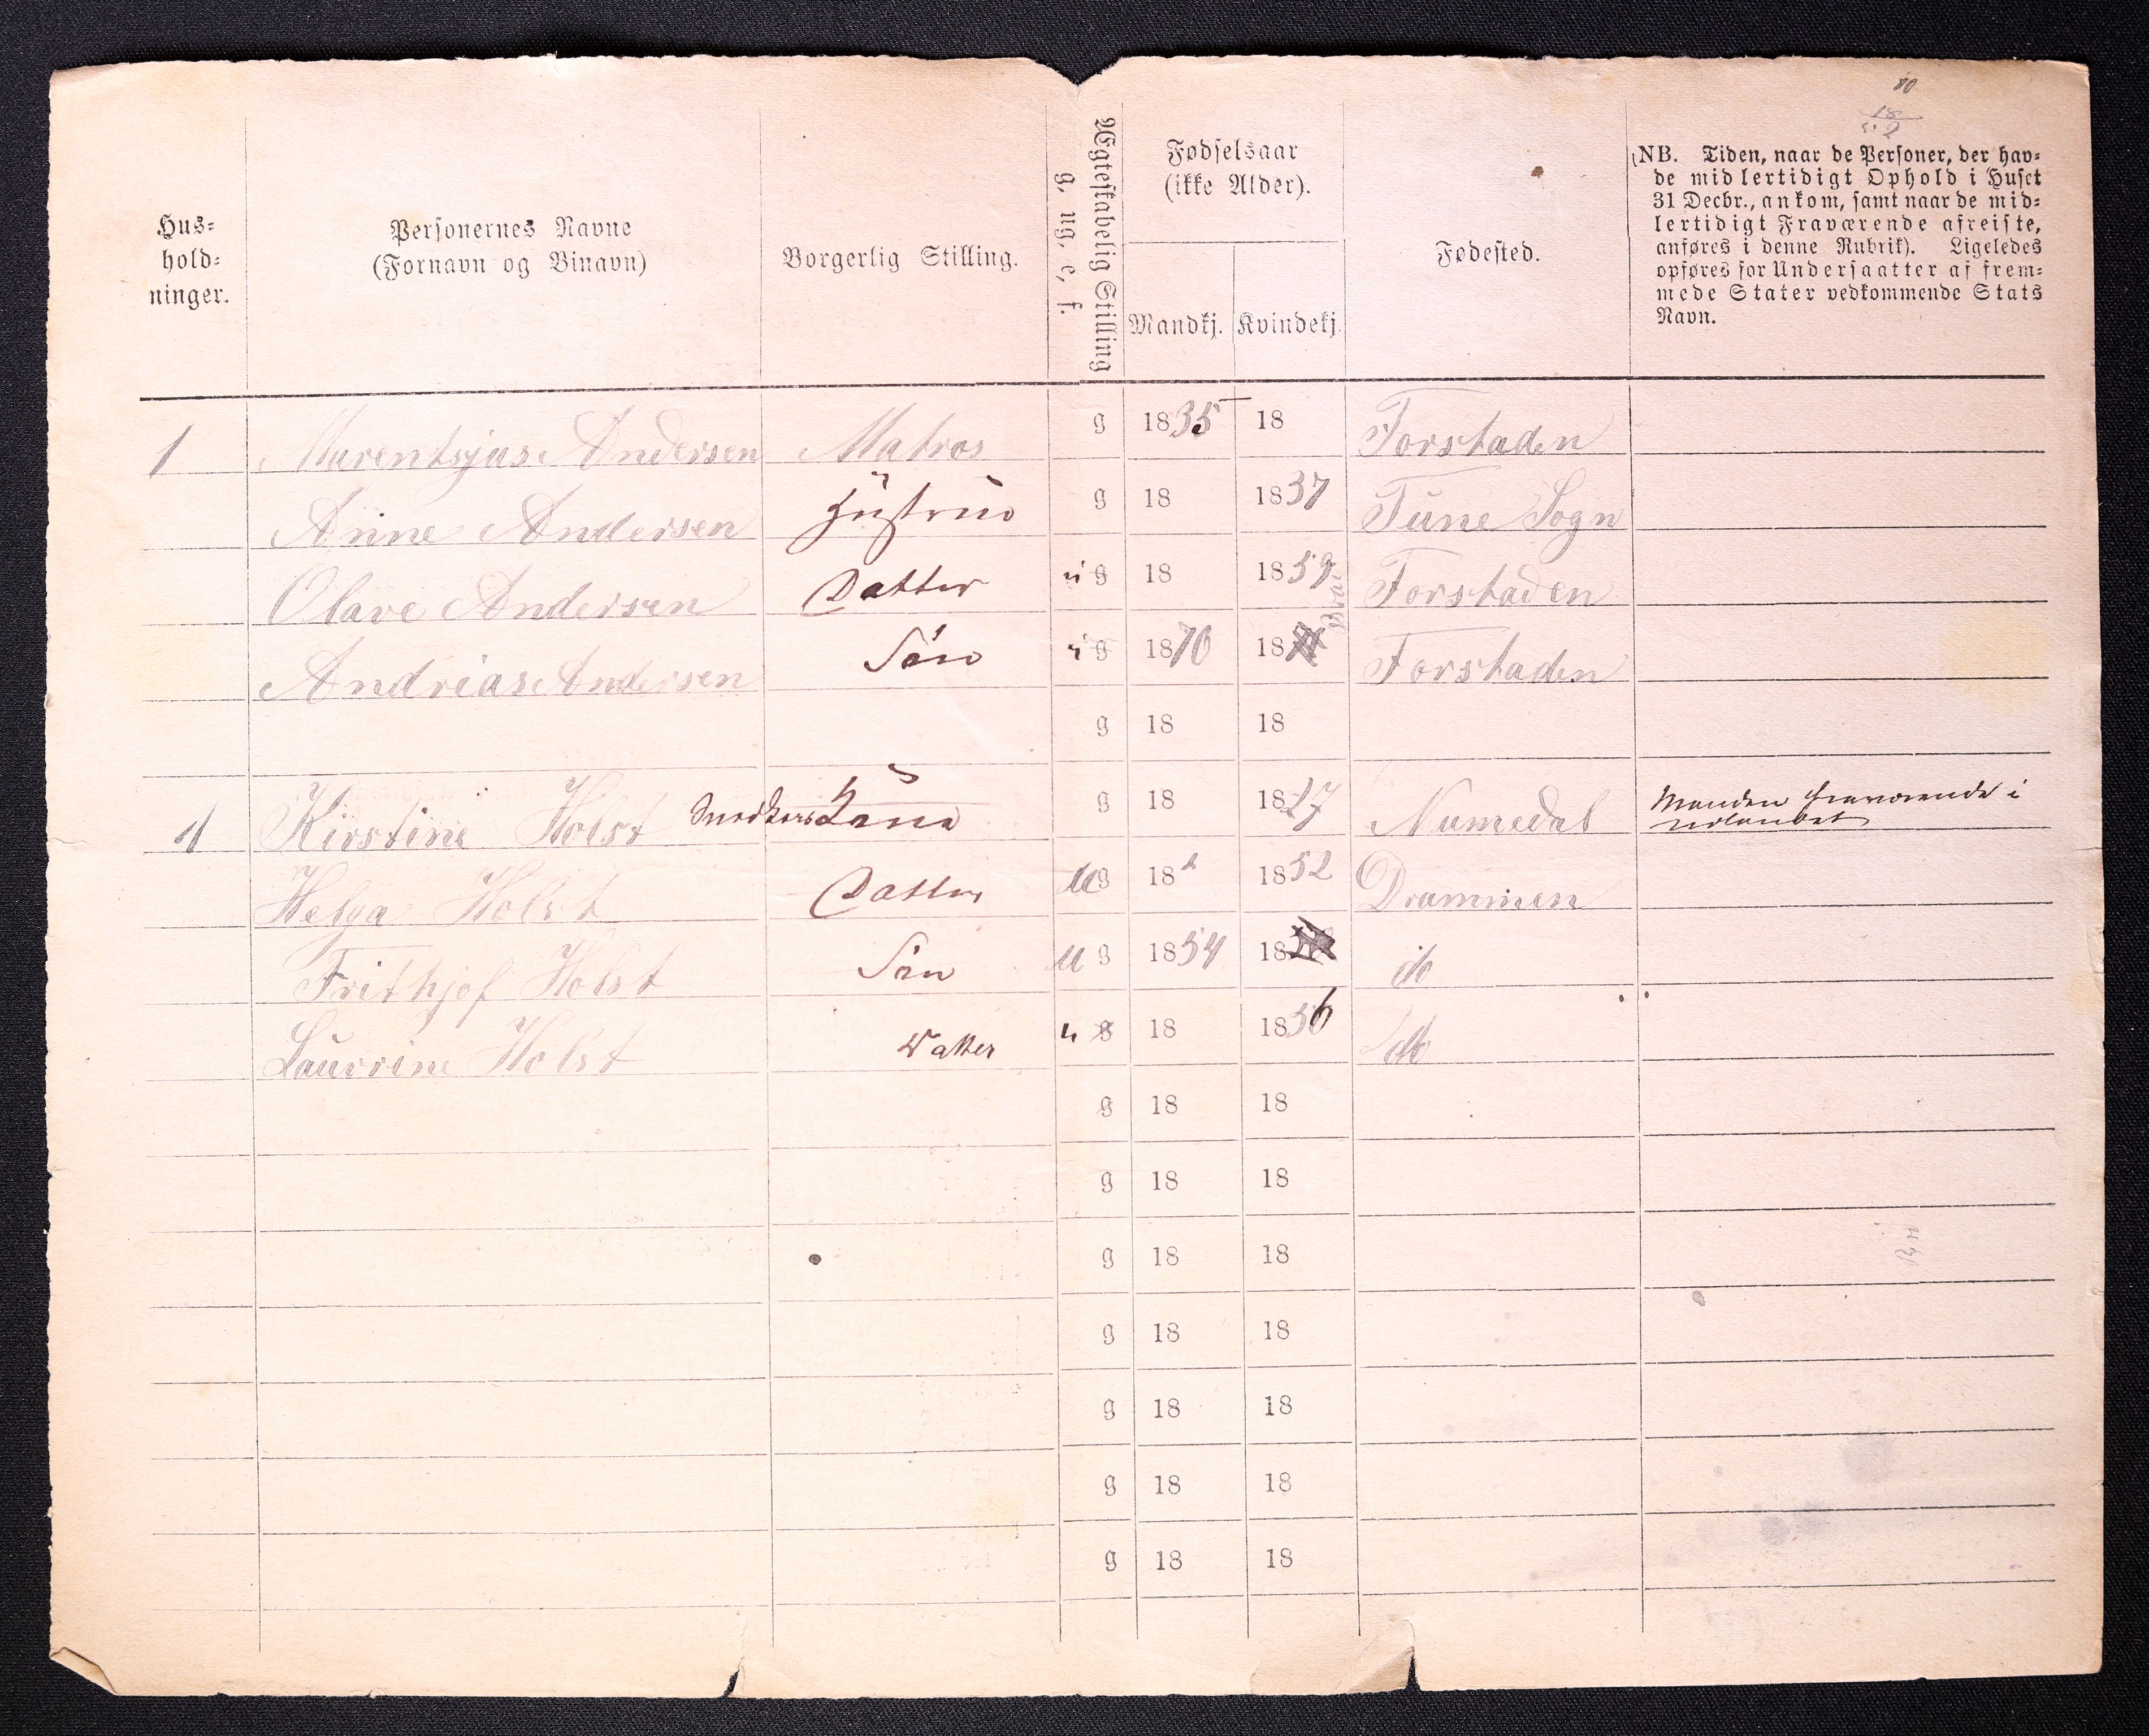 80
18
Hus-
hold-
ninger.
Personernes Navne
(Fornavn og Binavn)
Borgerlig Stilling.
Ægteskabelig Stilling
g, ug, e, f.
Fødselsaar
(ikke Alder).
Mandkj. Kvindekj.
Fødested.
(NB. Tiden, naar de Personer, der hav-
de midlertidigt Ophold i Huset
31 Decbr., ankom, samt naar de mid-
lertidigt Fraværende afreiste,
anføres i denne Rubrik). Ligeledes
opføres for Undersaatter af frem-
mede Stater vedkommende Stats
Navn.
1 Marentsjus Andersen Matros g 1835 18 Forstaden
Anne Andersen Hustru g 18 1837 Tune Sogn
Olave Andersen Datter u g 18 1859 Forstaden
Andreas Andersen Søn u g 1870 18 Forstaden
g 18 18
1 Kirstine Holst Snedkers Kone g 18 1827 Numedal Manden fraværende i
udlandet
Helga Holst Datter u g 18 1852 Drammen
Frithjof Holst Søn u g 1854 18 do
Laurine Holst Datter u g 18 1856 do
g 18 18
g 18 18
g 18 18
g 18 18
g 18 18
g 18 18
g 18 18